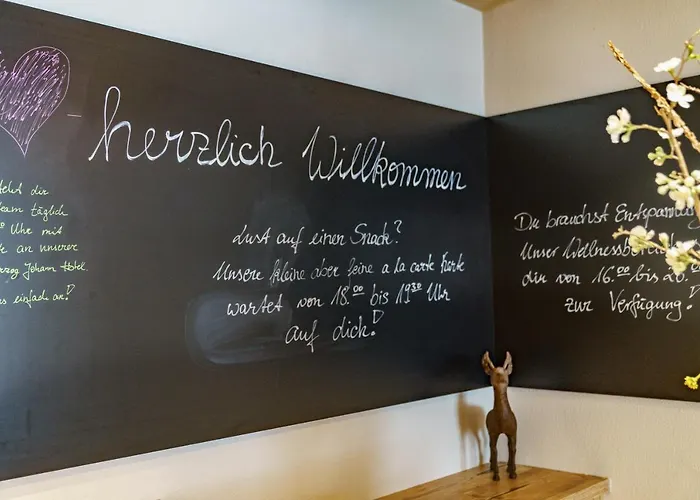 herzlich Willkommen
dir
täglich
Uhr mit
an unserer
Johann Hotel.
einfach an!
Lust auf einen Snack?
Unsere kleine aber feine a la carte Karte
wartet von 18.00 bis 19.30 Uhr
auf dich!
Du brauchst Entspannung
Unser Wellnessbereich
dir von 16.00 bis 20.
zur Verfügung!